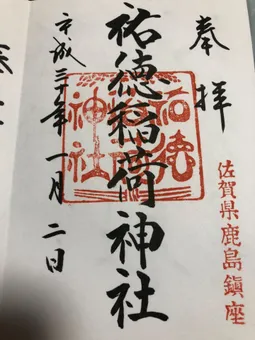 奉拝
佐賀県鹿島鎮座
祐徳稲荷神社
祐徳
神社
平成三十年一月二日